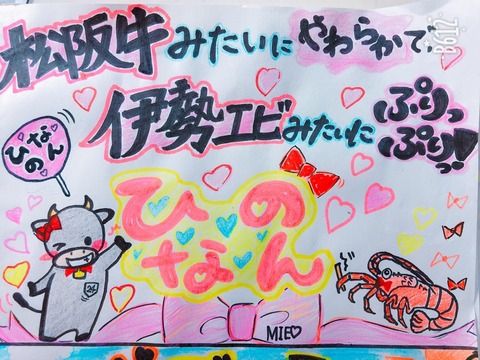 松阪牛みたいにやわらかで
伊勢エビみたいにぷりっぷりっ!
ひな
のん
ひな
のん
MIE♡
B612